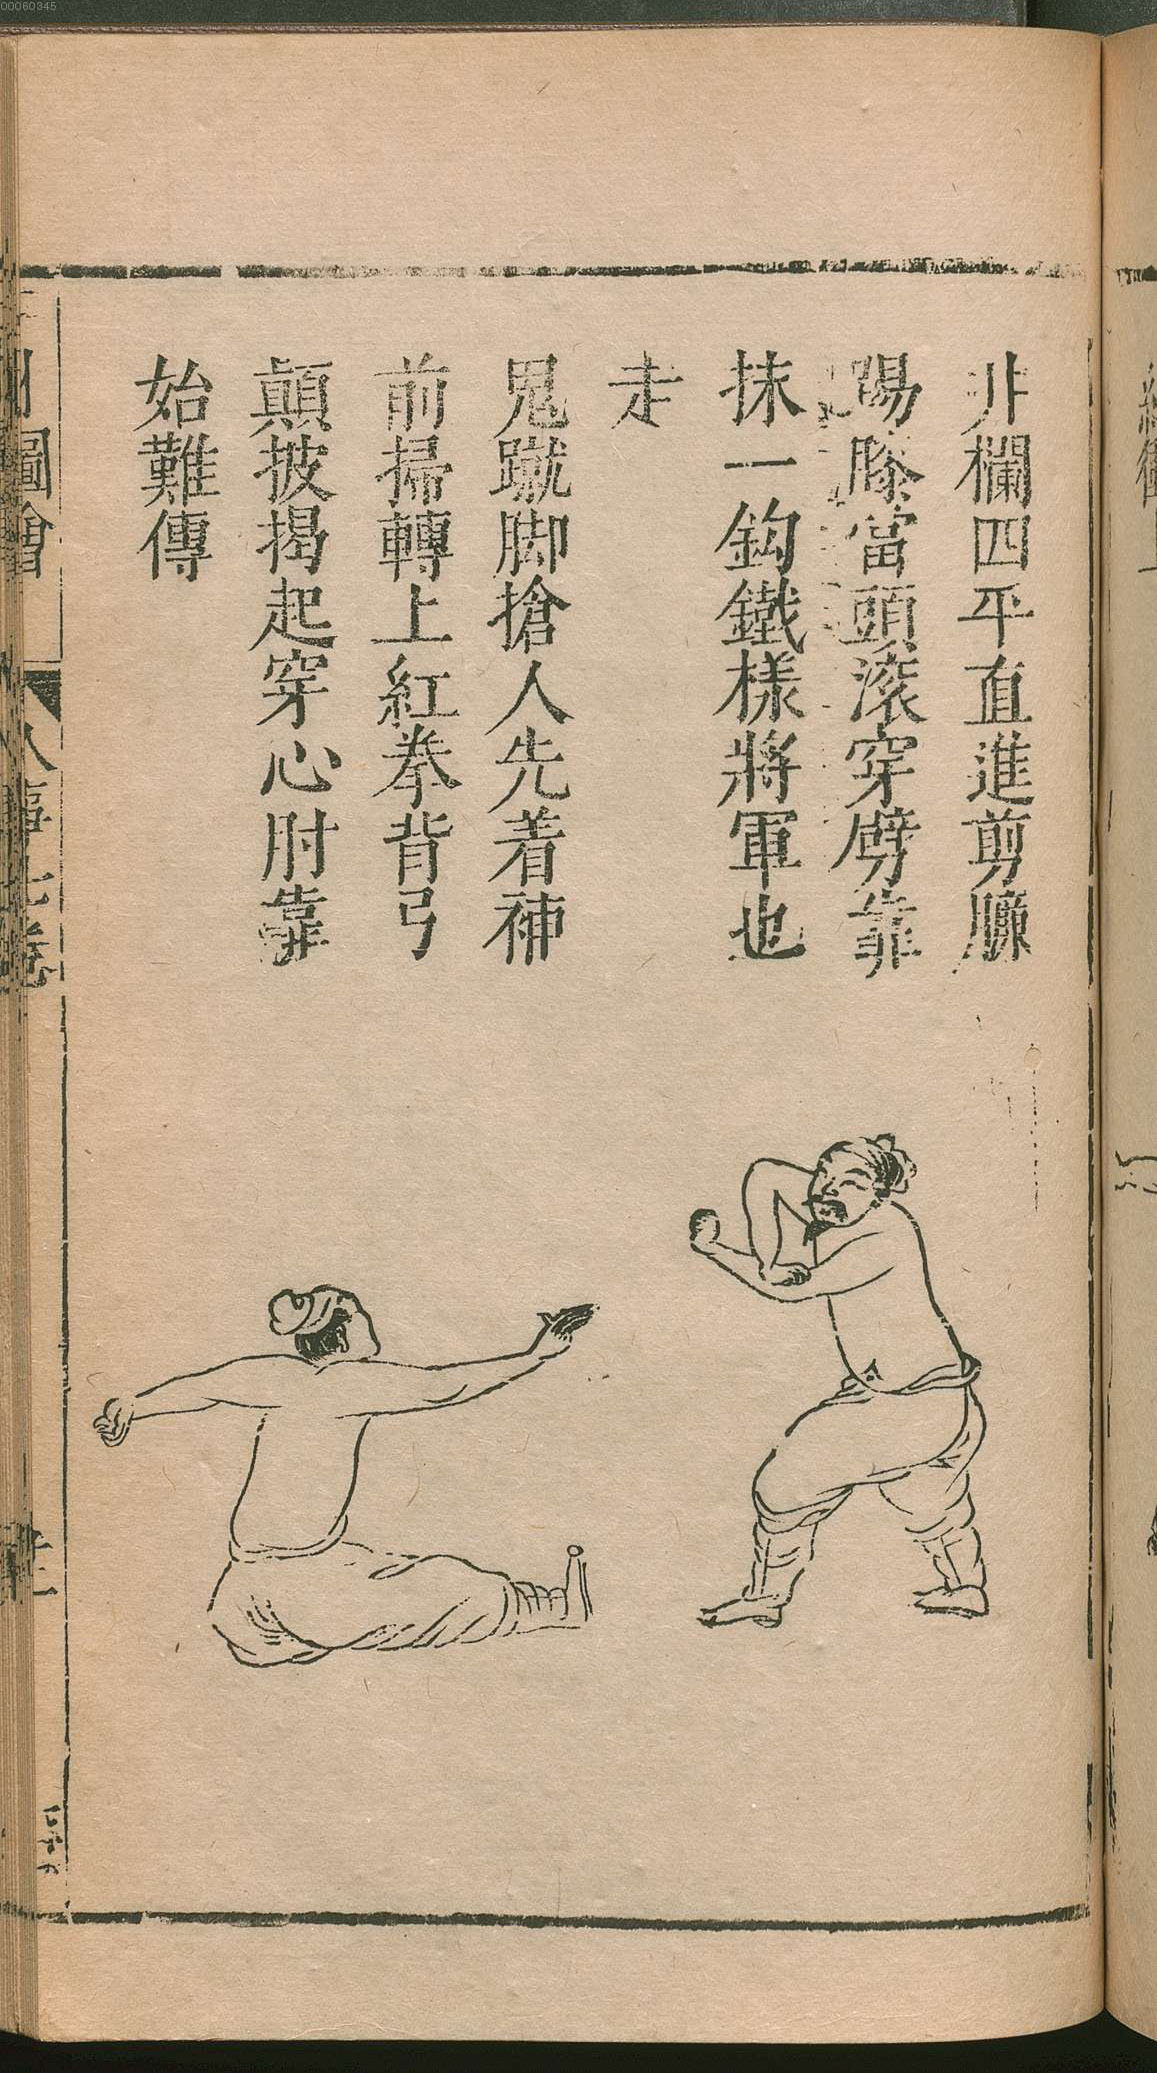 井欄四平直進剪臁
踢膝當頭滚穿劈靠
抹一鈎鐵樣將軍也
走
鬼蹴脚搶人先着補
前掃轉上紅拳背弓
顛披揭起穿心肘靠
始難傳
圖會
人事七卷
00060345